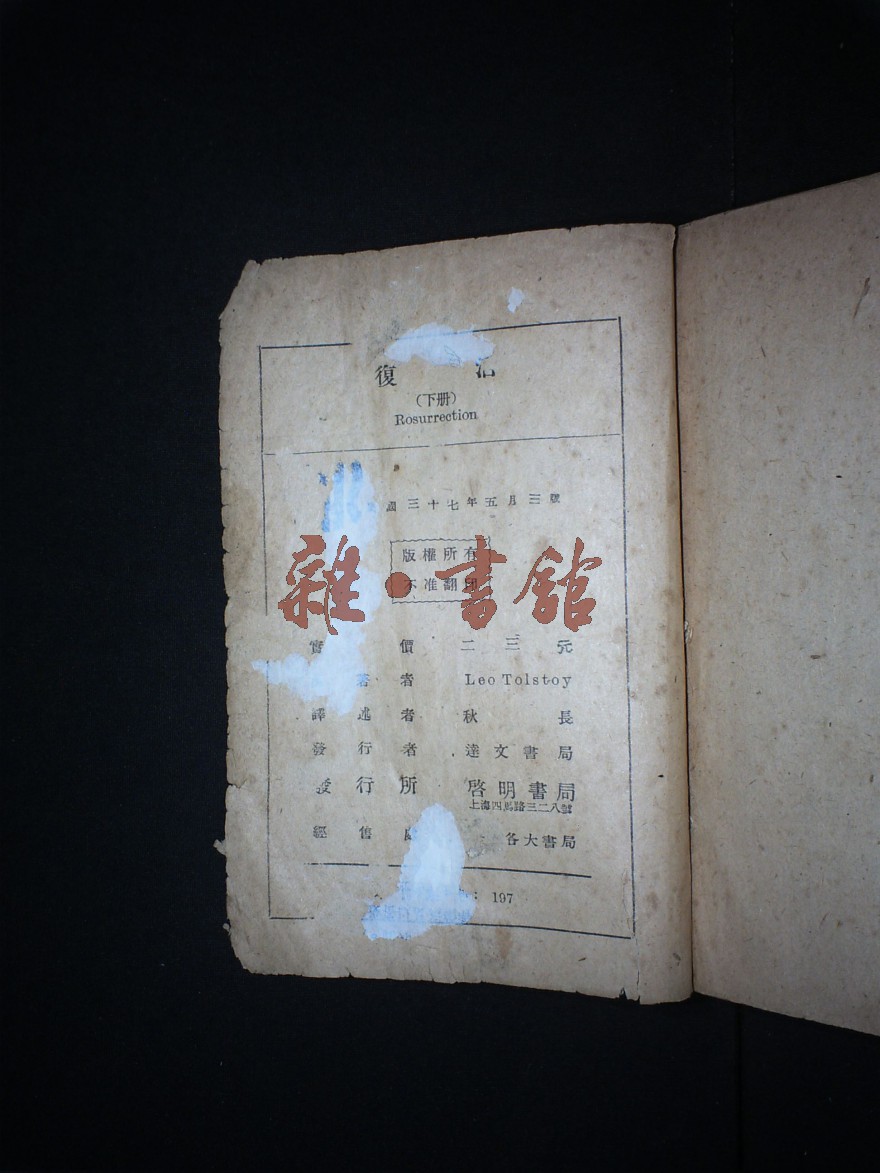 復 活
(下册)
Rosurrection
國三十七年五月三號
版權所有
不准翻印
雜·書館
實價 二三元
著者 Leo Tolstoy
譯述者 秋長
發行者 達文書局
發行所 啓明書局
上海四馬路三二八號
經售處 各大書局
: 197